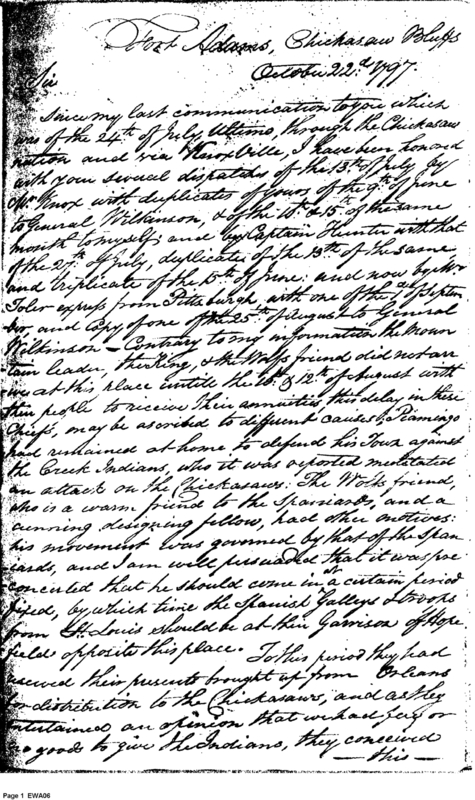 Fort Adams, Chickasaw Bluffs
October 22d. 1797.
Sir
Since my last communication to you which
was of the 24th of July Ultimo, through the Chickasaw
nation and via Knoxville, I have been honored
with your several dispatches of the 13th of July by
Mr Knox with duplicates of yours of the 9th of June
to General Wilkinson, & of the 10th & 15th of the same
month to myself; and by Captain Hunter with that
of the 27th of July, duplicate of the 13th of the same
and triplicate of the 15th of June: and now by Mr
Toler express from Pittsburgh with one of the 2d of Septem
ber and copy of one of the 25th of August to General
Wilkinson — Contrary to my information the Moun
tain leader, the King, & the Wolfs friend did not arr
ive at this place untill the 10th & 12th of August with
their people to receive their annuities this delay in these
Chiefs, may be ascribed to different causes, Piamingo
had remained at home to defend his Town against
the Creek Indians, who it was reported meditated
an attack on the Chickasaws: The Wolfs friend,
who is a warm friend to the Spaniards, and a
cunning designing fellow, had other motives:
his movement was governed by that of the Span
iards, and I am well persuaded that it was pre
concerted that he should come in at a certain period
fixed, by which time the Spanish Galleys & troops
from St. Louis should be at their Garrison of Hope
field opposite this place. To this period they had
received their presents brought up from Orleans
for distribution to the Chickasaws, and as they
entertained an opinion that we had few or
no goods to give the Indians, they conceived
— this —
Page 1 EWA06